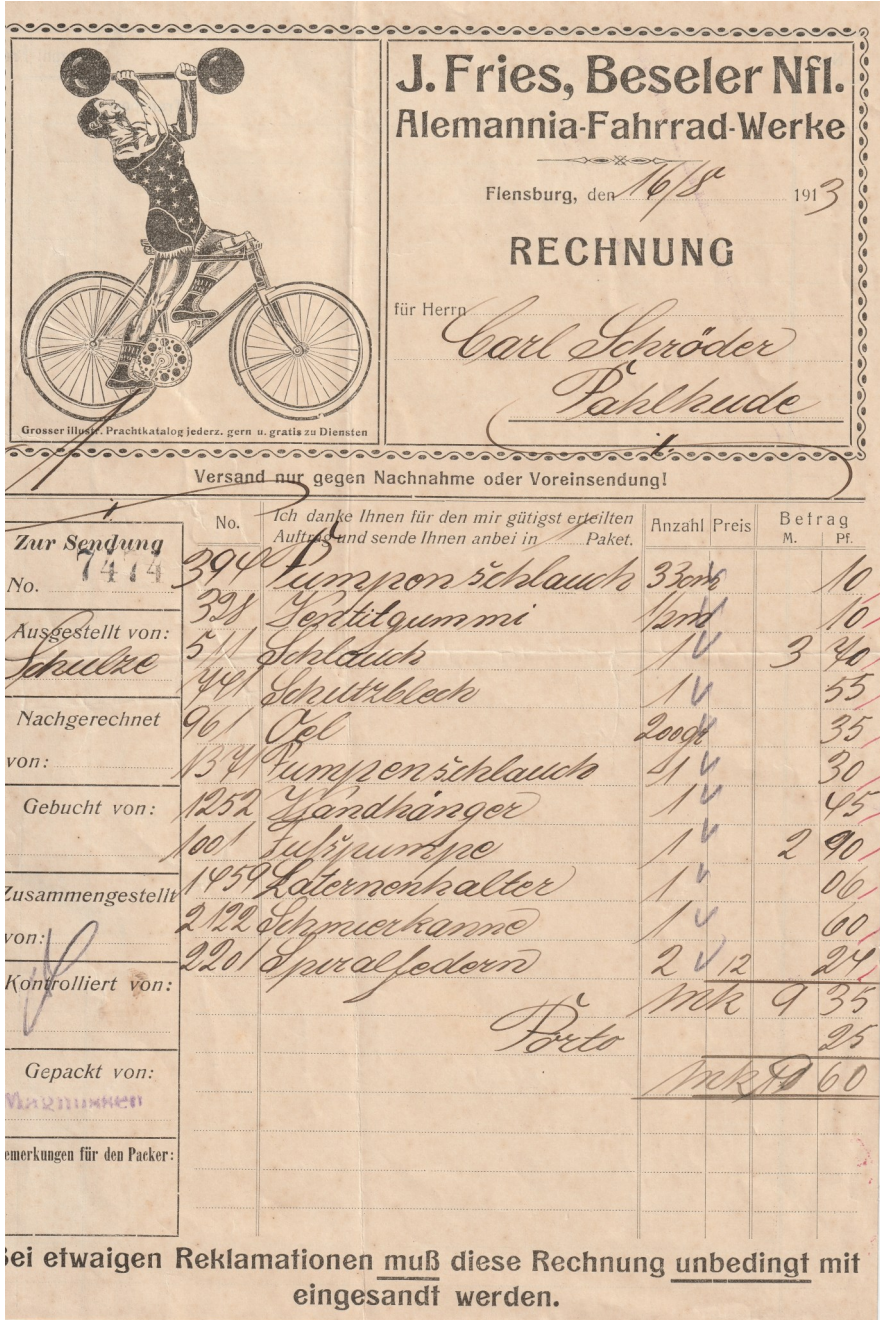 J. Fries, Beseler Nfl.
Alemannia-Fahrrad-Werke
Flensburg, den 16/8 1913
RECHNUNG
für Herrn
Carl Schröder
Pahlhude
Grosser illustr. Prachtkatalog jederz. gern u. gratis zu Diensten
Versand nur gegen Nachnahme oder Voreinsendung!
Zur Sendung
No. 7474
Ausgestellt von:
Schulze
Nachgerechnet
von:
Gebucht von:
Zusammengestellt
von:
Kontrolliert von:
Gepackt von:
emerkungen für den Packer:
No. Ich danke Ihnen für den mir gütigst erteilten Anzahl Preis Betrag
Auftrag und sende Ihnen anbei in Paket. M. Pf.
394 Pumpenschlauch 33cm 10
328 Ventilgummi 1/2m 10
511 Schlauch 1 3 70
741 Schutzblech 1 55
961 Oel 200gr 35
1371 Pumpenschlauch 1 30
1252 Wandhänger 1 45
1001 Fußpumpe 1 2 90
1459 Laternenhalter 1 06
2122 Schmierkanne 1 60
2201 Spiralfedern 2 12 24
Mk 9 35
Porto 25
Mk 60
Bei etwaigen Reklamationen muß diese Rechnung unbedingt mit
eingesandt werden.